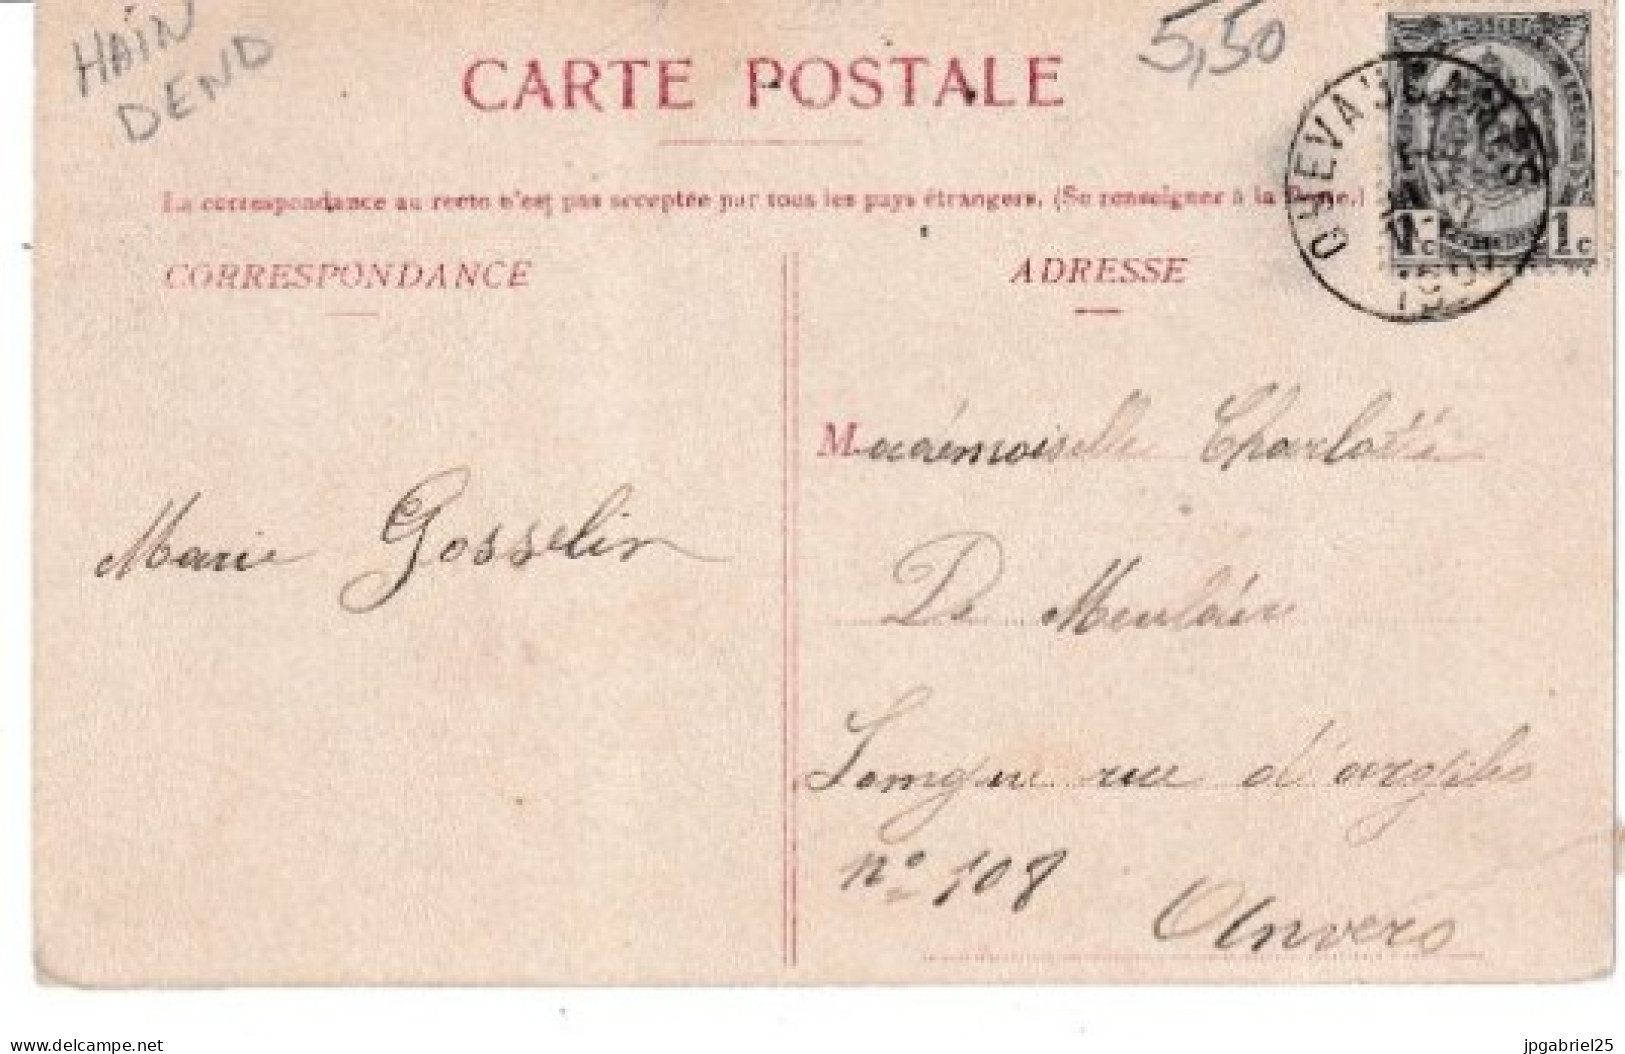 HAIN
DEND
5,50
CARTE POSTALE
La correspondance au recto n'est pas acceptée par tous les pays étrangers. (Se renseigner à la Poste.)
1c 1c
CORRESPONDANCE
ADRESSE
Mademoiselle Charlotte
Marie Gosselin
De Meulair
Longue rue d'argile
n° 108
Anvers
www.delcampe.net
jpgabriel25